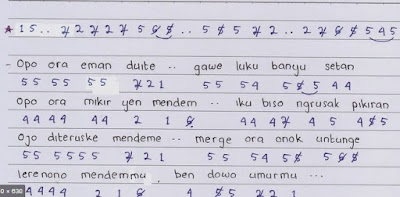 ★ 15.. 7̸27̸27̸ 5 6̸ 5̸.. 5 5̸ 5 7̸2.. 27̸6̸5̸ 545
- Opo ora eman duite .. gawe luku banyu setan
55 55 55 55 7̸21 55 54 55̸5 44
Opo ora mikir yen mendem .. iku biso ngrusak pikiran
4444 44 2 1 6̸ 44 47̸ 4 5 45̸5
Ojo diteruske mendeme .. merge ora onok untunge
55 5555 7̸21 55 54 55̸ 56̸5̸
lerenono mendemmu, ben dowo umurmu ...
4444 2 1 6̸ 4 5̸5 7̸21
0 × 630